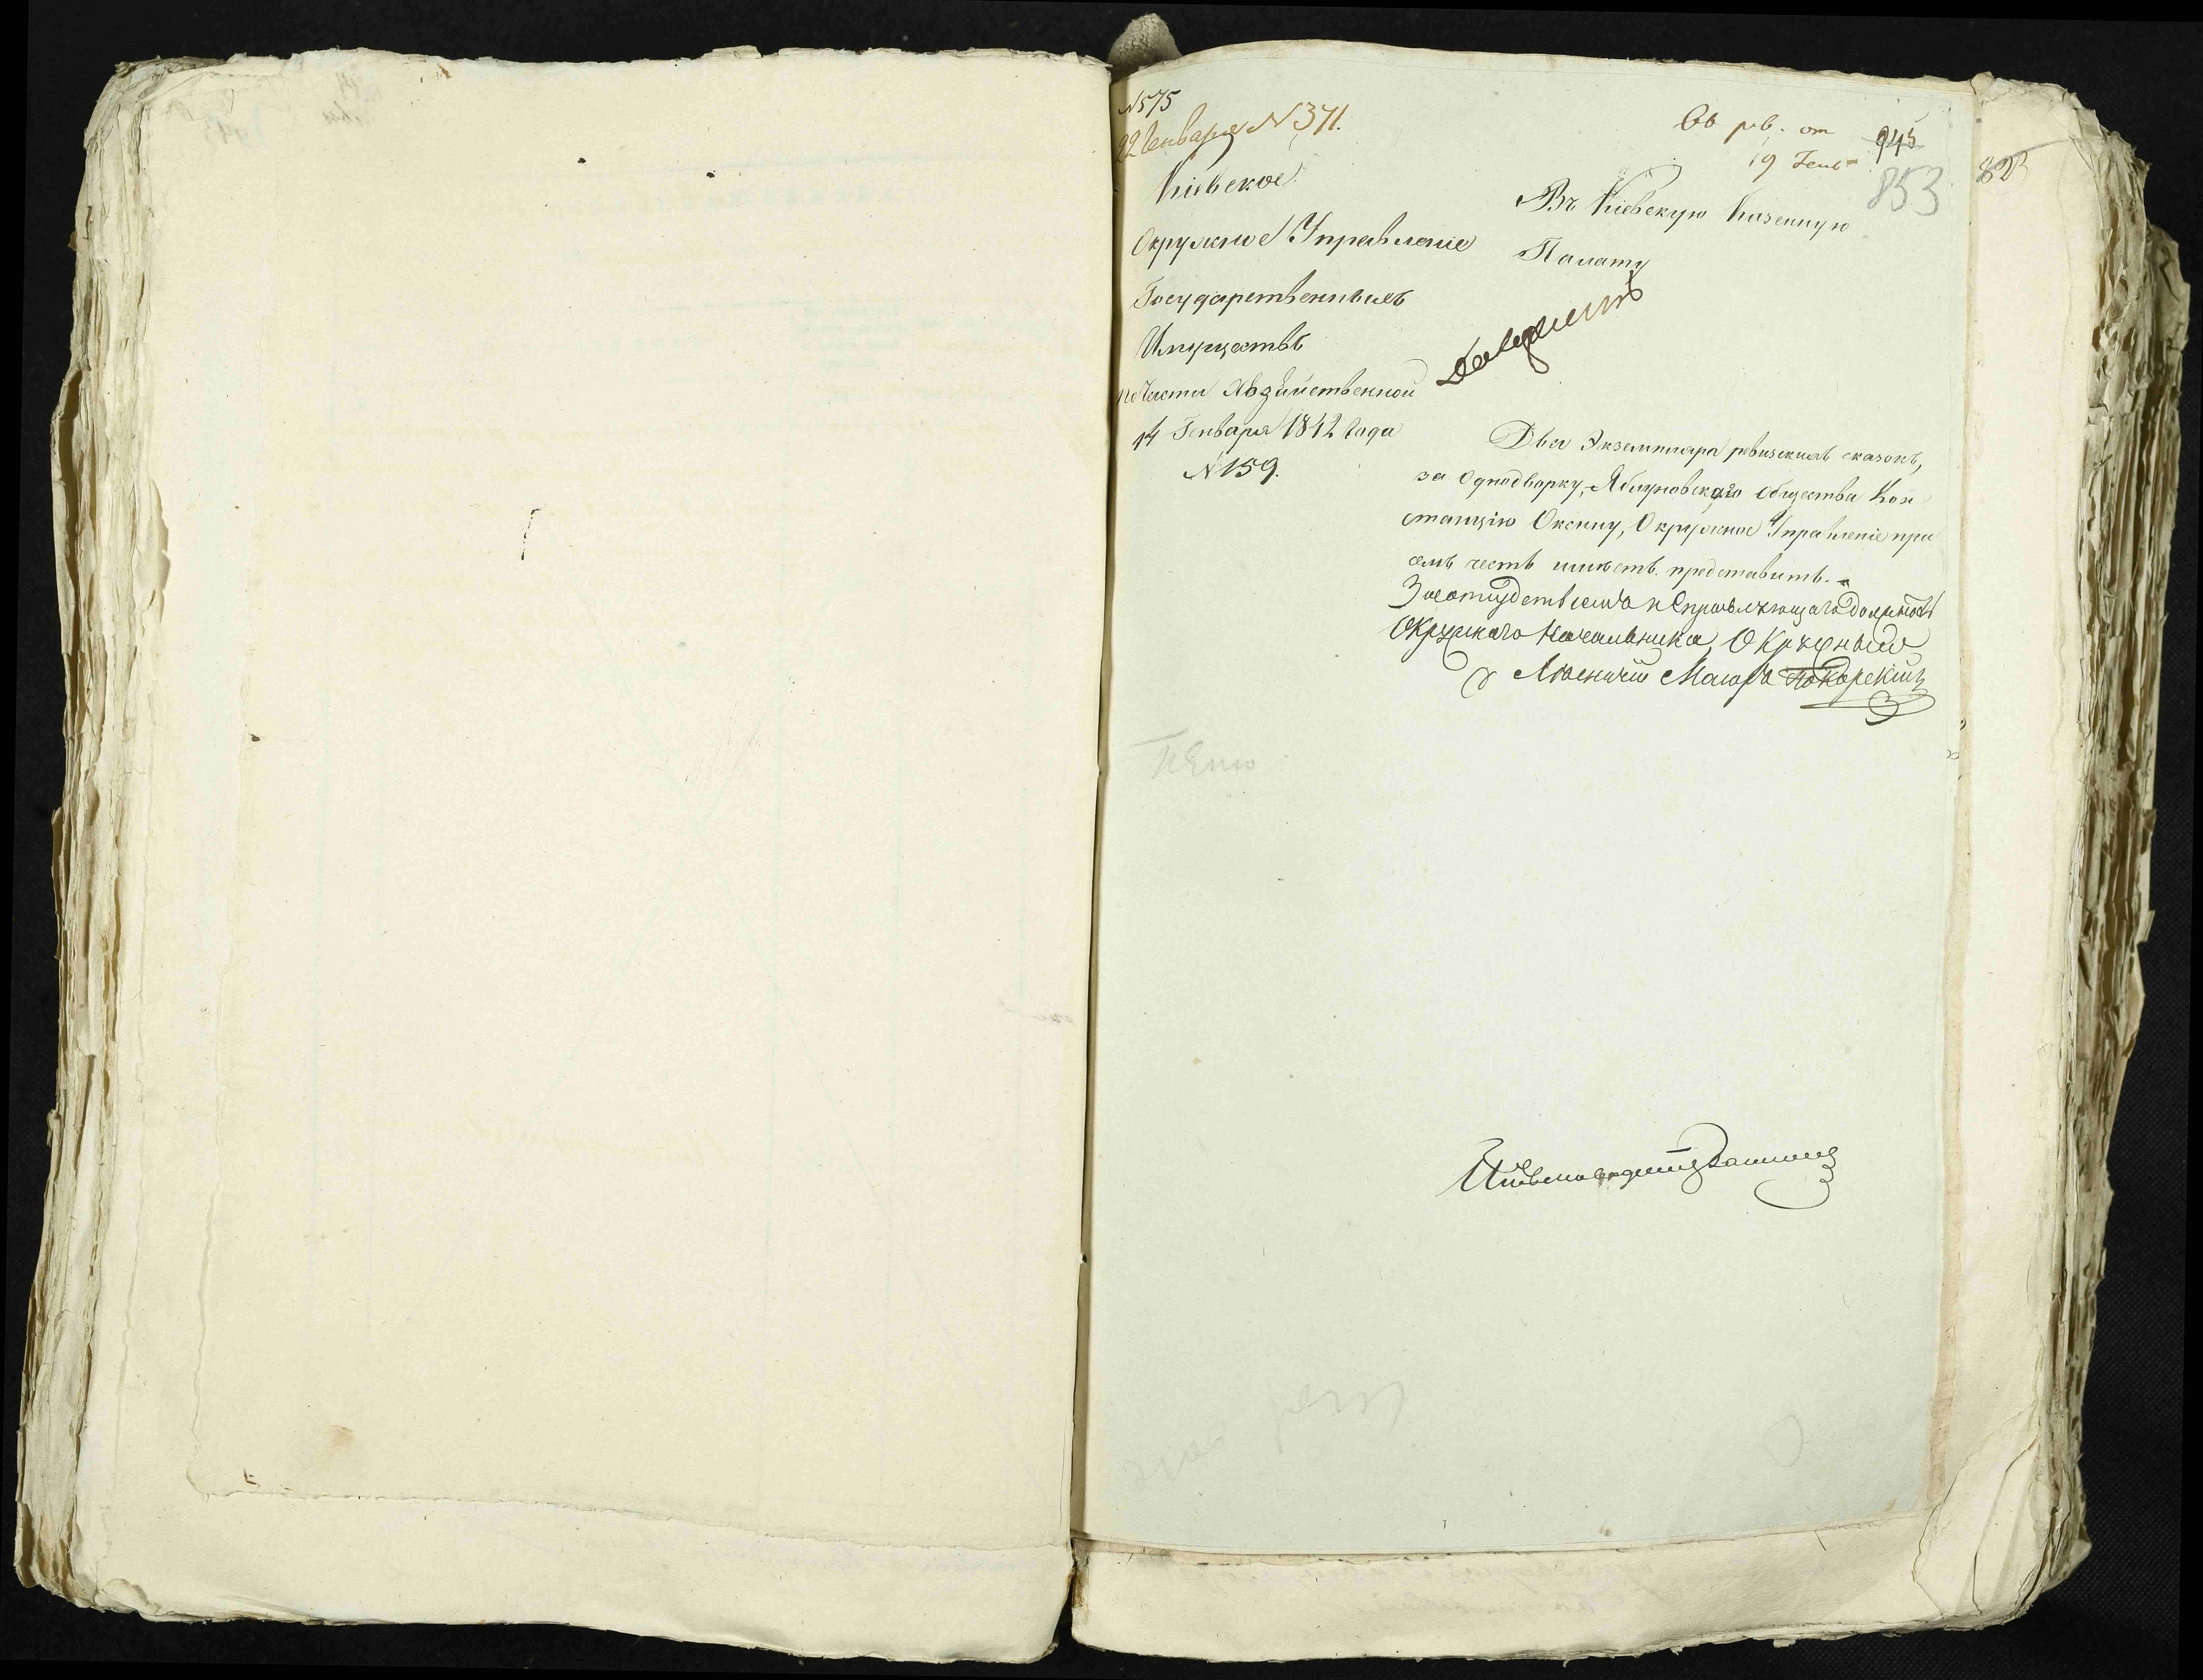 N 575
22 Генваря N 371.
Кіевское
Окружное Управленіе
Государственныхъ
Имуществъ
по Части Хозяйственной
14 Генваря 1842 Года
N 159.
рев. от
19 Генв
943
853
823
Въ Кіевскую Казенную
Палату
Два Экземпляра ревизскихъ сказокъ,
за Однодворку, Яблуновскаго общества Кон
станцію Окружное Управленіе при
семъ честь имѣетъ представить.
За отсудствіемъ Исправляющаго Должность
Окружнаго Начальника, Окружный
Лѣсничій Маіоръ
Письмоводитель